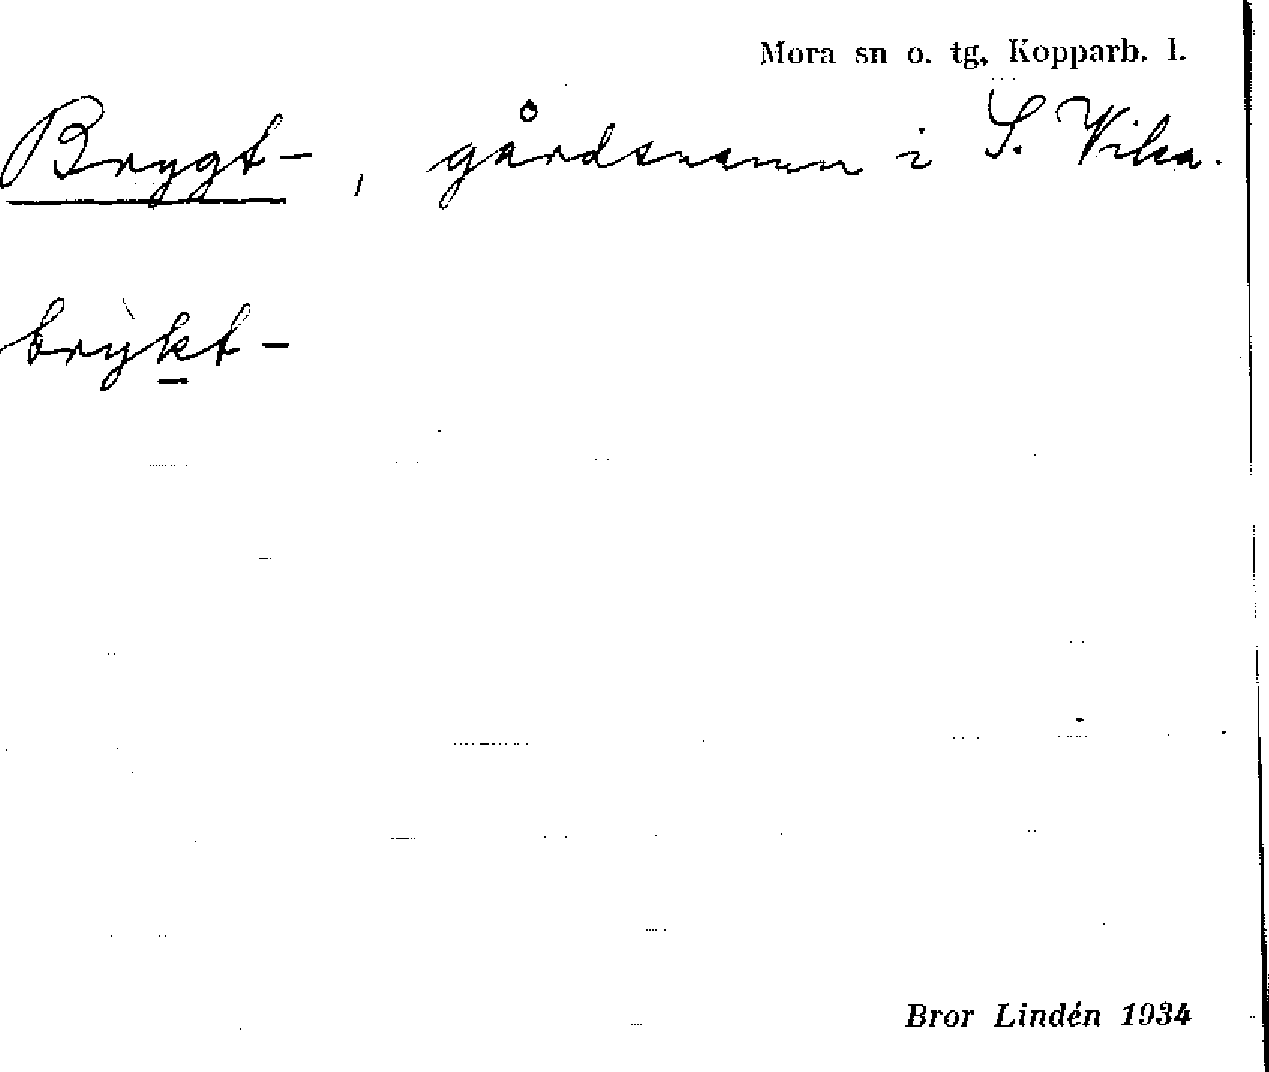 Mora sn o. tg, Kopparb. l.
Brygt-, gårdsnamn i S. Vika.
brỳkt-
Bror Lindén 1934